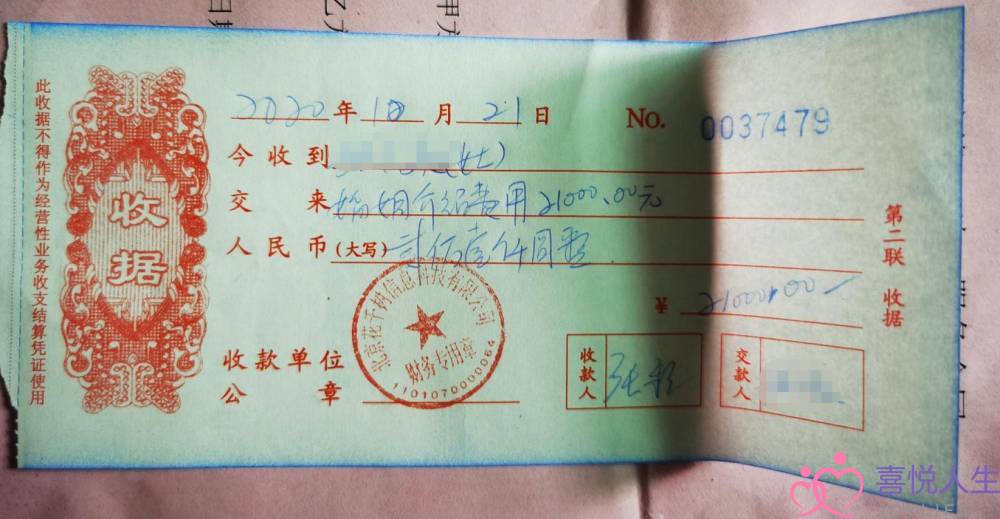 此收据不得作为经营性业务收支结算凭证使用
收据
2020年10月21日 No. 0037479
今收到 (女)
交来 婚姻介绍费用21000.00元
人民币(大写) 贰佰壹仟圆整
¥ 21000.00
第二联 收据
收款单位
公章
北京花千树信息科技有限公司
财务专用章
1101070000064
收款人
交款人
喜悦人生
LIFE